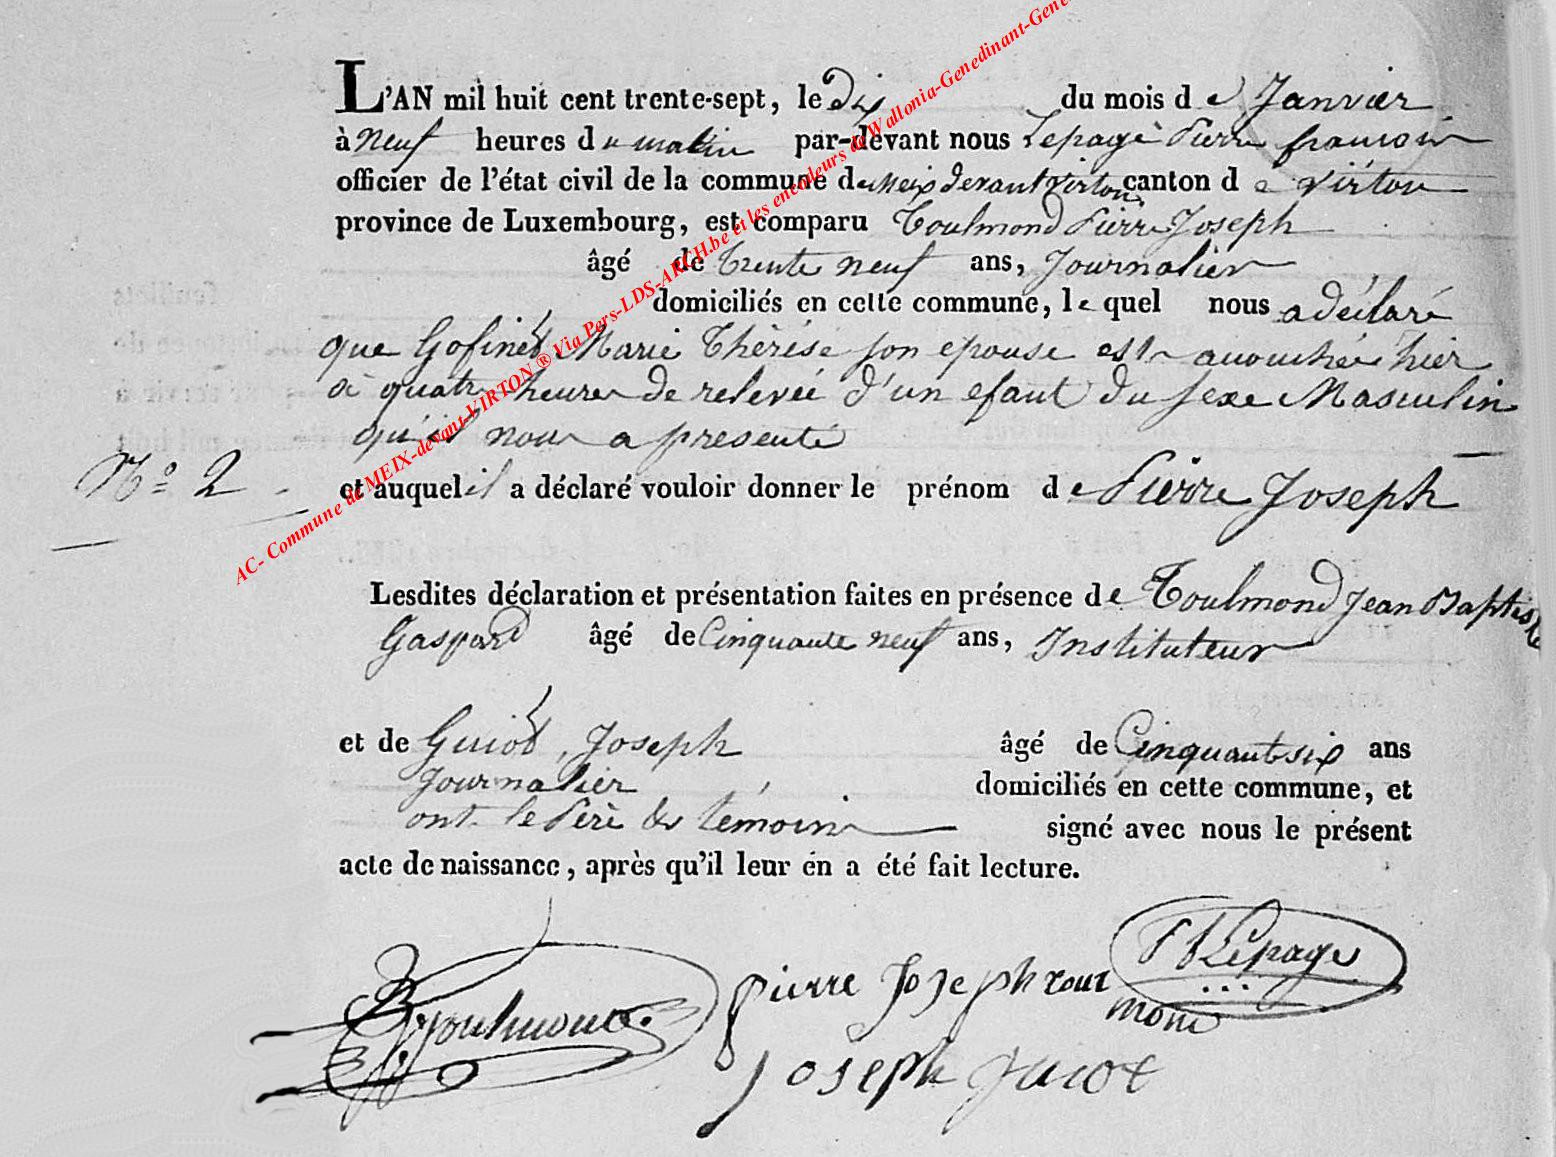 L'AN mil huit cent trente-sept, le dix du mois de Janvier
à neuf heures du matin par-devant nous Lepage Pierre françois
officier de l'état civil de la commune de Meix devant Virton canton de Virton
province de Luxembourg, est comparu Toulmond Pierre Joseph
âgé de trente neuf ans, Journalier
domiciliés en cette commune, lequel nous a déclaré
que Gofinet Marie Thérèse son epouse est accouchée hier
à quatre heures de relevée d'un efant du sexe Masculin
qu'il nous a presenté
N° 2
et auquel il a déclaré vouloir donner le prénom de Pierre Joseph
Lesdites déclaration et présentation faites en présence de Toulmond Jean Baptiste
Gaspard âgé de Cinquante neuf ans, Instituteur
et de Guiot, Joseph âgé de Cinquante six ans
Journalier domiciliés en cette commune, et
ont le Père & témoins signé avec nous le présent
acte de naissance, après qu'il leur en a été fait lecture.
Toulmond
pierre Joseph
mond
Lepage
Joseph
AC- Commune de MEIX-devant-VIRTON ® Via Pers-LDS-ARCH.be et les encodeurs de Wallonia-Genedinant-Gene